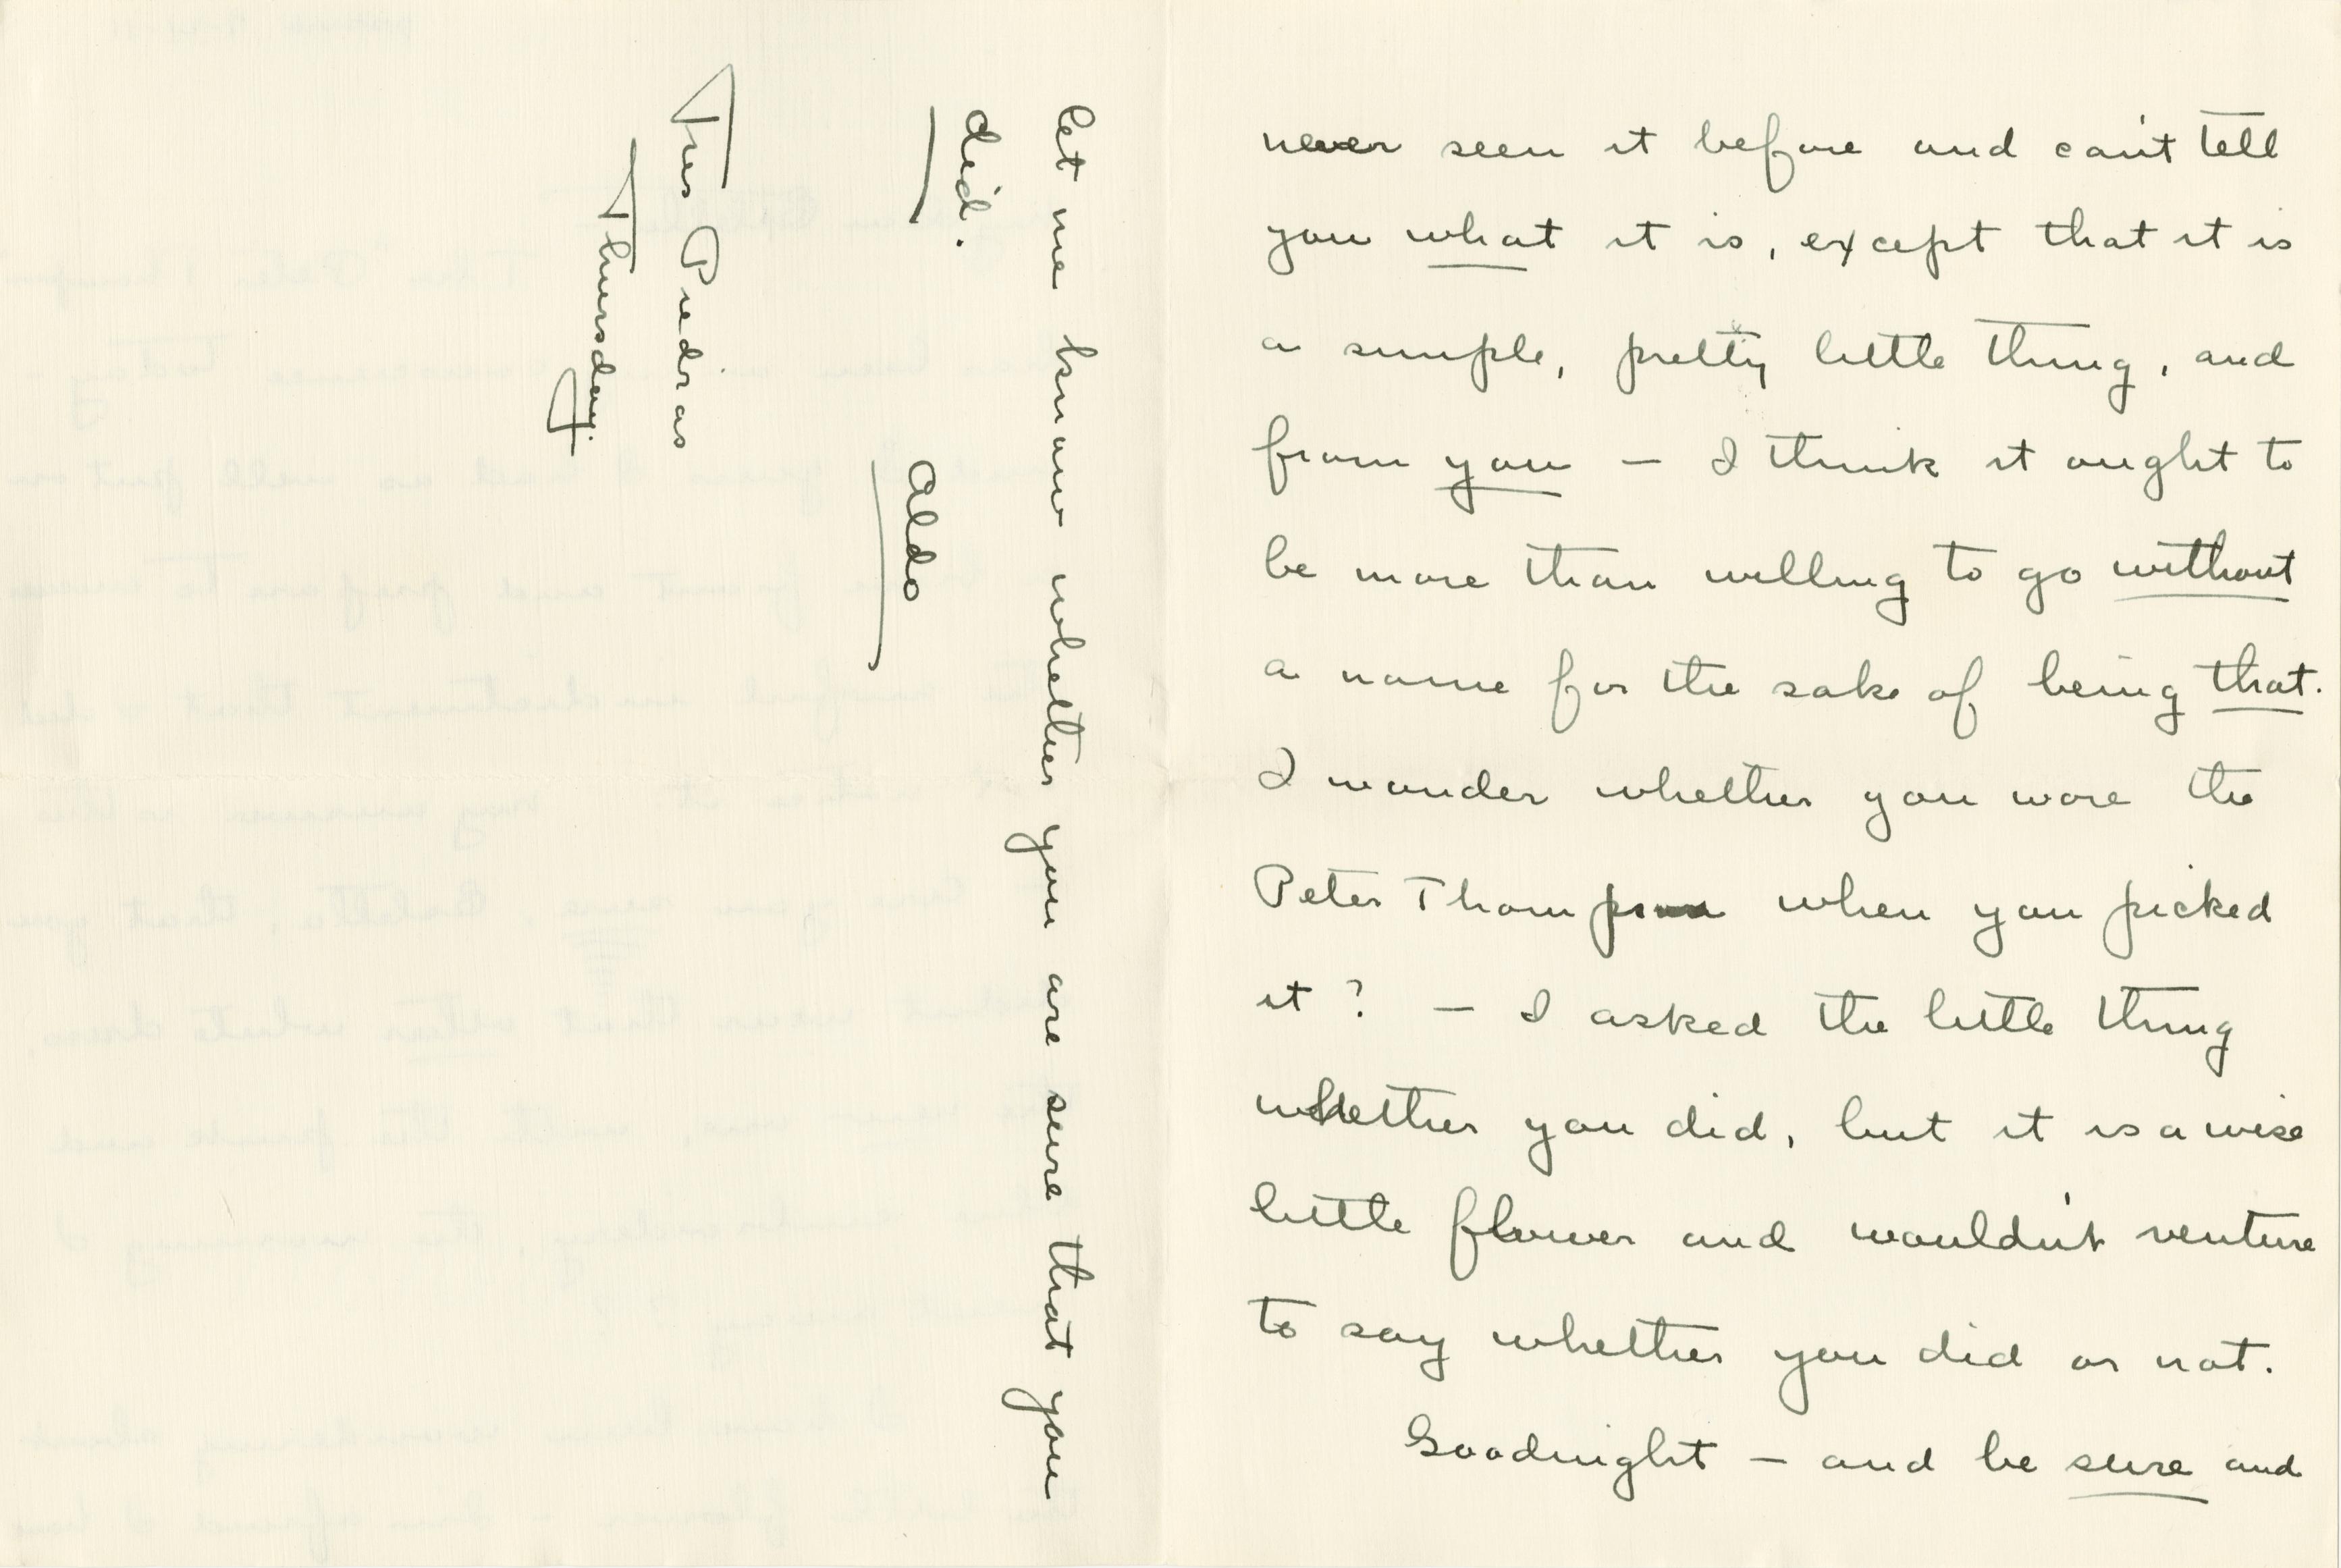 never seen it before and can't tell
you what it is, except that it is
a simple, pretty little thing, and
from you — I think it ought to
be more than willing to go without
a name for the sake of being that.
I wonder whether you wore the
Peter Thompson when you picked
it? — I asked the little thing
whether you did, but it is a wise
little flower and wouldn't venture
to say whether you did or not.
Goodnight — and be sure and
let me know whether you are sure that you
did.
Aldo
Tres Piedras
Thursday.